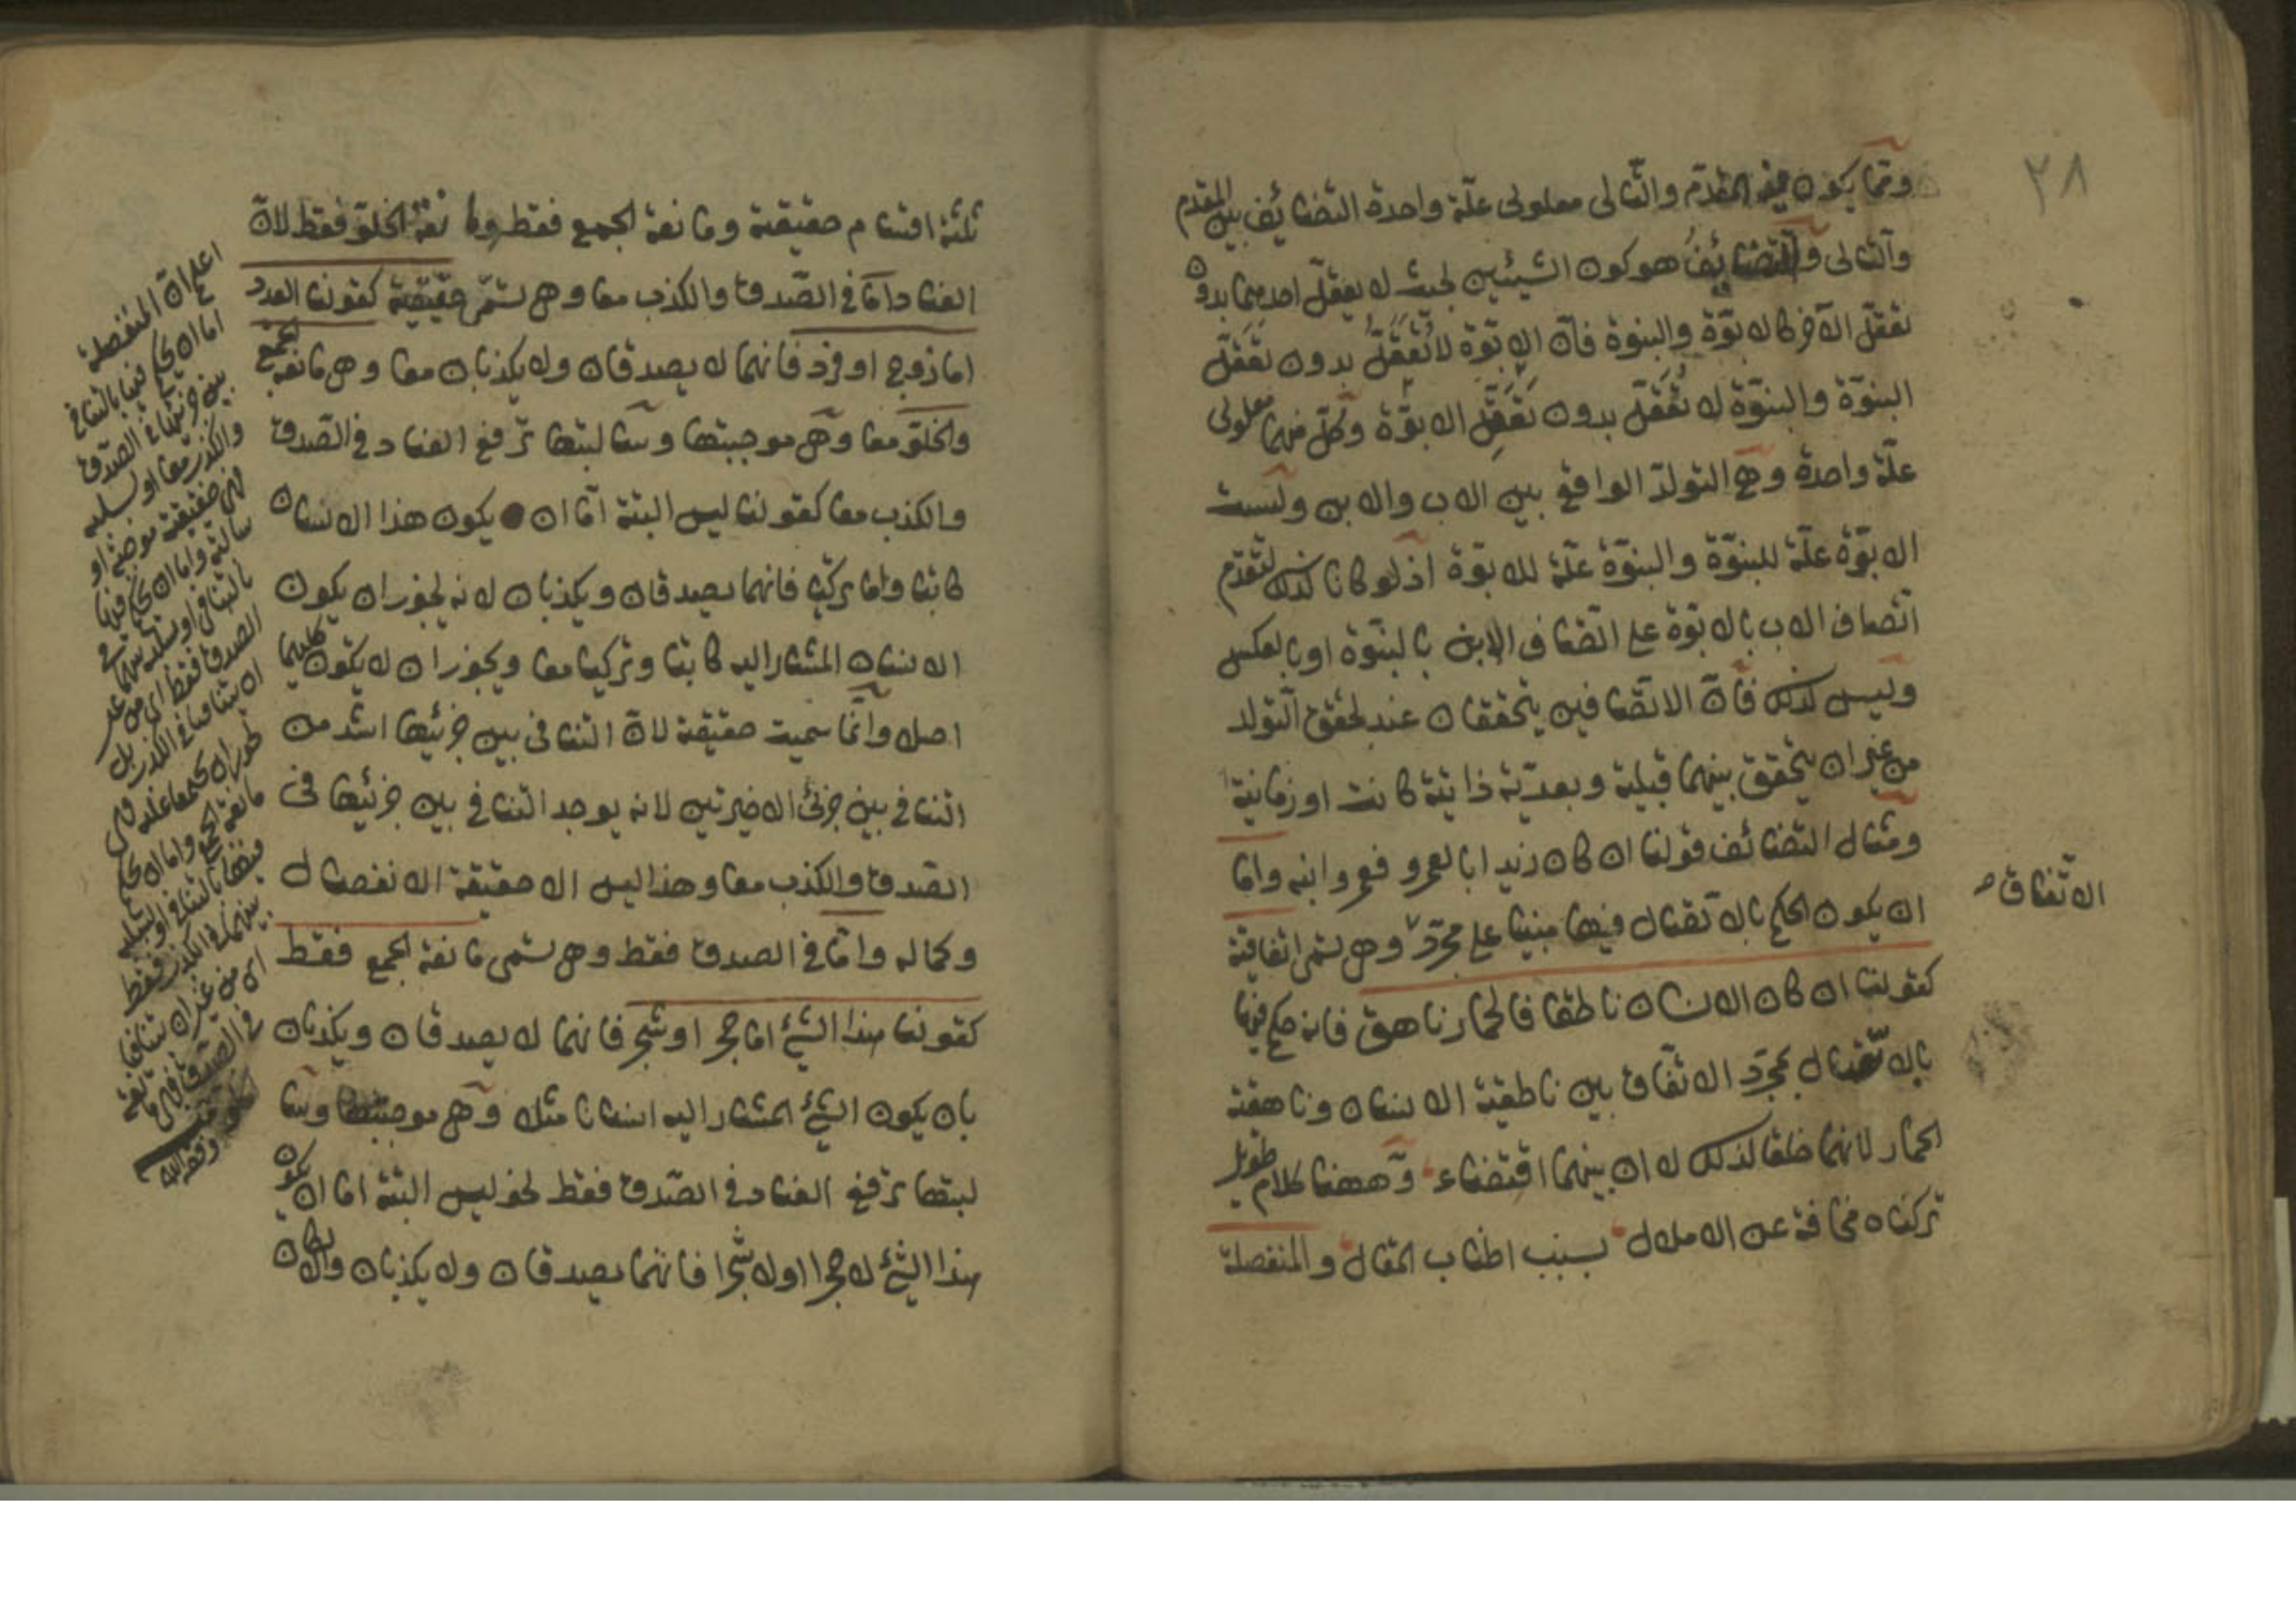 ٢٨
ومما يكون فيه المقدم والتالى معلولى علة واحدة التضائف بين المقدم
والتالى والتضائف هو كون الشيئين بحيث لا يعقل احدهما بدون
تعقل الآخر كالابوة والبنوة فان الابوة لا تعقل بدون تعقل
البنوة والبنوة لا تعقل بدون تعقل الابوة وكل منهما معلولى
علة واحدة وهى التولد الواقع بين الاب والابن وليست
الابوة علة للبنوة والبنوة علة للابوة اذ لو كانا كذلك لتقدم
اتصاف الاب بالابوة على اتصاف الابن بالبنوة او بالعكس
وليس كذلك فان الاتصافين يتحققان عند تحقق التولد
من غير ان يتحقق بينهما قبلية وبعدية ذاتية كانت او زمانية
ومثال التضائف قولنا ان كان زيد ابا لعمرو فعمرو ابنه واما
ان يكون الحكم بالاتصال فيها مبنيا على مجرد وهى تسمى اتفاقية
الاتفاق صح
كقولنا ان كان الانسان ناطقا فالحمار ناهق فانه حكم فيها
بالاتصال بمجرد الاتفاق بين ناطقية الانسان وناهقية
الحمار لانهما خلقا كذلك لا ان بينهما اقتضاء وههنا كلام طويل
تركناه مخافة عن الاملال بسبب اطناب المقال والمنفصلة
ثلثة اقسام حقيقية ومانعة الجمع فقط ومانعة الخلو فقط لان
العناد اما فى الصدق والكذب معا وهى تسمى حقيقية كقولنا العدد
اما زوج او فرد فانهما لا يصدقان ولا يكذبان معا وهى مانعة الجمع
والخلو معا وهى موجبتها وسالبتها ترفع العناد فى الصدق
والكذب معا كقولنا ليس البتة اما ان يكون هذا الانسان
كاتبا واما تركيا فانهما يصدقان ويكذبان لانه يجوز ان يكون
الانسان المشار اليه كاتبا وتركيا معا ويجوز ان لا يكون كليهما
اصلا وانما سميت حقيقية لان التنافى بين جزئيها اشد من
التنافى بين جزئى الاخيرتين لانه يوجد التنافى بين جزئيها فى
الصدق والكذب معا وهذا ليس الا حقيقة الانفصال
وكماله واما فى الصدق فقط وهى تسمى مانعة الجمع فقط
كقولنا هذا الشئ اما حجر او شجر فانهما لا يصدقان ويكذبان
بان يكون الشئ المشار اليه انسانا مثلا وهى موجبتها وسا
لبتها ترفع العناد فى الصدق فقط نحو ليس البتة اما ان يكون
هذا الشئ لا حجرا او لا شجرا فانهما يصدقان ولا يكذبان والا لكان
اعلم ان المنفصلة
اما ان يحكم فيها بالتنافى
بين جزئيها فى الصدق
والكذب معا او بسلبه
فهى حقيقية موجبة او
سالبة واما ان يحكم فيها
بالتنافى او بسلبه بينهما فى
الصدق فقط اى من غير
ان يتنافيا فى الكذب بل
يجوز ان يجتمعا عليه وهى
مانعة الجمع واما ان يحكم
فيها بالتنافى او بسلبه
بينهما فى الكذب فقط
اى من غير ان يتنافيا
فى الصدق فهى مانعة